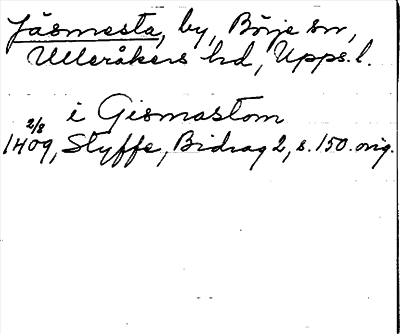 Jäsmesta, by, Börje sn,
Ulleråkers hd, Upps. l.
i Gismastom
2/8 1409, Styffe, Bidrag 2, s. 150. orig.